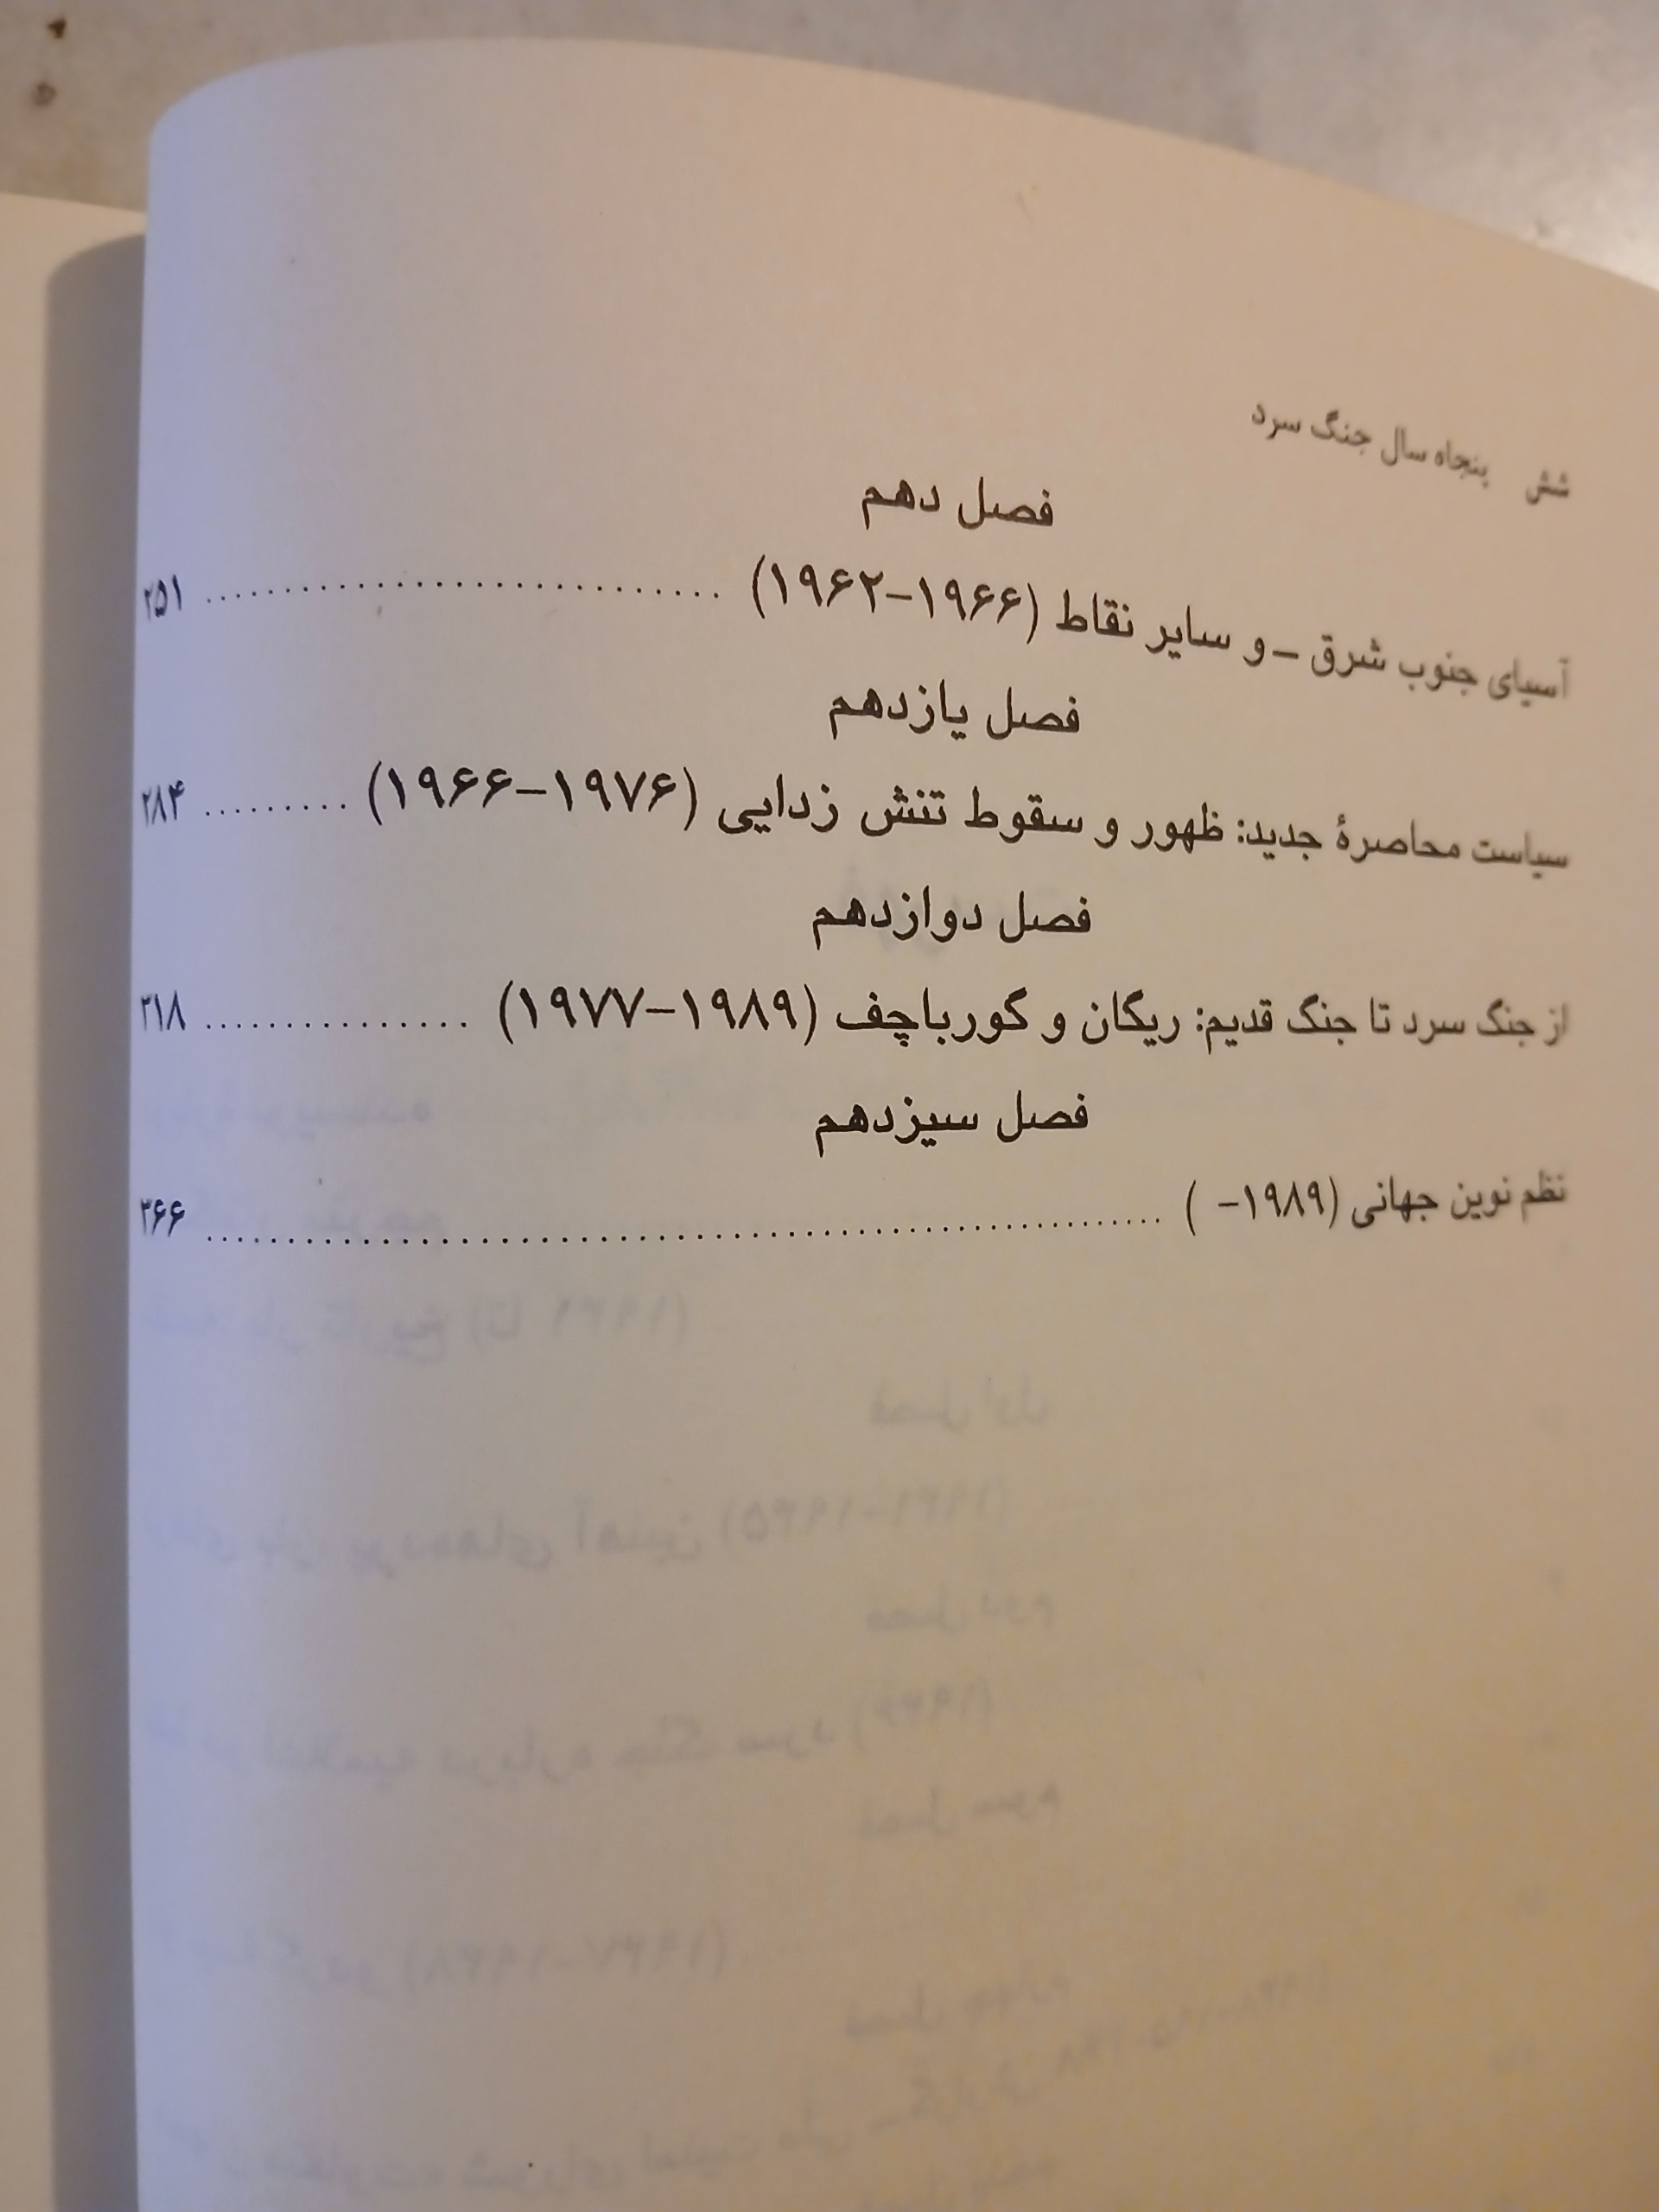 شش    پنجاه سال جنگ سرد
فصل دهم
آسیای جنوب شرق – و سایر نقاط (۱۹۶۶–۱۹۶۲) ........................... ۲۵۱
فصل یازدهم
سیاست محاصرهٔ جدید: ظهور و سقوط تنش زدایی (۱۹۷۶–۱۹۶۶) ......... ۲۸۴
فصل دوازدهم
از جنگ سرد تا جنگ قدیم: ریگان و گورباچف (۱۹۸۹–۱۹۷۷) ............... ۳۱۸
فصل سیزدهم
نظم نوین جهانی (۱۹۸۹–  ) ................................................ ۳۶۶